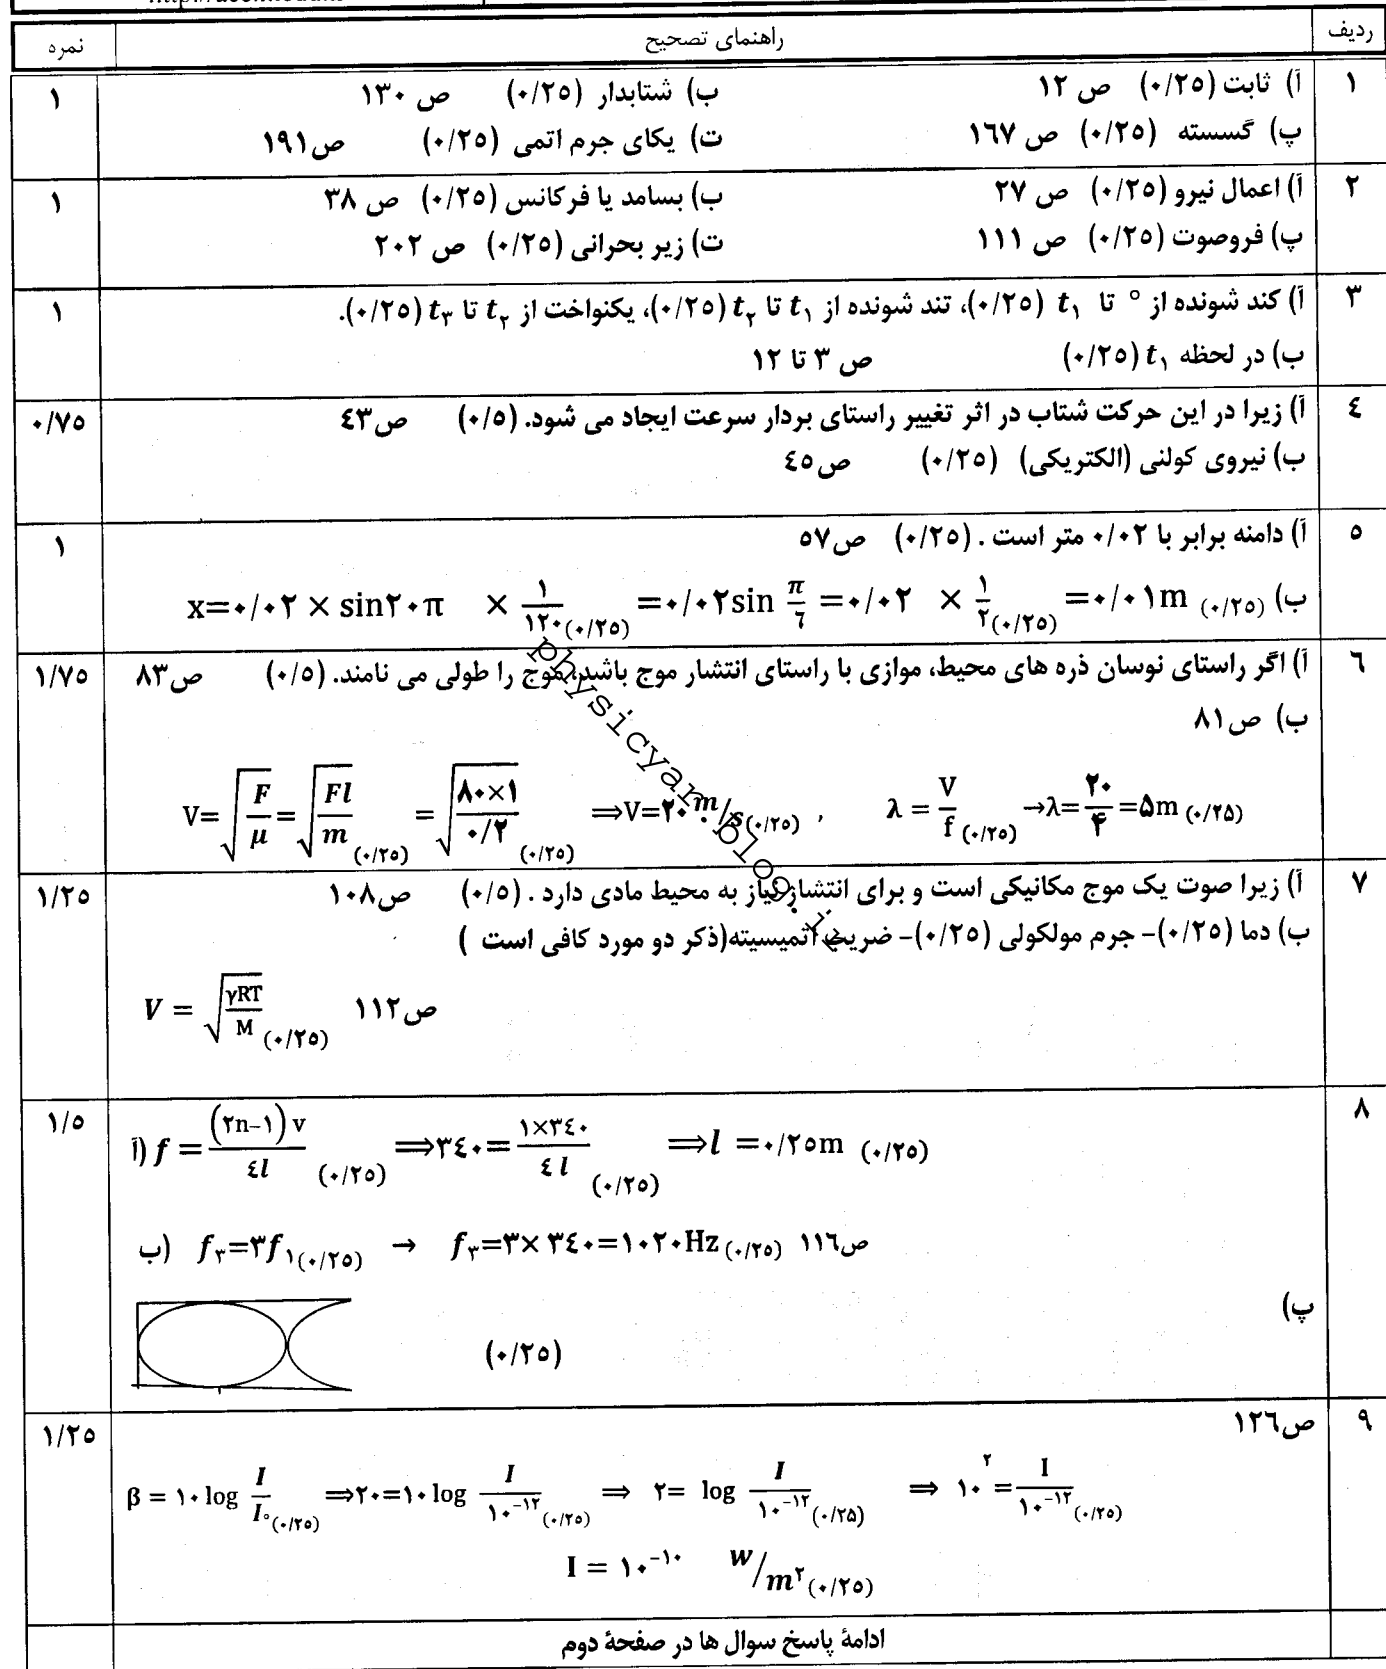 ردیف	راهنمای تصحیح	نمره
۱	آ) ثابت (۰/۲۵) ص ۱۲	ب) شتابدار (۰/۲۵) ص ۱۳۰	۱
پ) گسسته (۰/۲۵) ص ۱۶۷	ت) یکای جرم اتمی (۰/۲۵) ص۱۹۱
۲	آ) اعمال نیرو (۰/۲۵) ص ۲۷	ب) بسامد یا فرکانس (۰/۲۵) ص ۳۸	۱
پ) فروصوت (۰/۲۵) ص ۱۱۱	ت) زیر بحرانی (۰/۲۵) ص ۲۰۲
۳	آ) کند شونده از ° تا t₁ (۰/۲۵)، تند شونده از t₁ تا t₂ (۰/۲۵)، یکنواخت از t₂ تا t₃ (۰/۲۵).	۱
ب) در لحظه t₁ (۰/۲۵) ص ۳ تا ۱۲
۴	آ) زیرا در این حرکت شتاب در اثر تغییر راستای بردار سرعت ایجاد می شود. (۰/۵) ص۴۳	۰/۷۵
ب) نیروی کولنی (الکتریکی) (۰/۲۵) ص۴۵
۵	آ) دامنه برابر با ۰/۰۲ متر است . (۰/۲۵) ص۵۷	۱
ب) x=۰/۰۲ × sin۲۰π × ۱/۱۲۰ (۰/۲۵) =۰/۰۲sin π/۶ =۰/۰۲ × ۱/۲ (۰/۲۵) =۰/۰۱m (۰/۲۵)
۶	آ) اگر راستای نوسان ذره های محیط، موازی با راستای انتشار موج باشد، موج را طولی می نامند. (۰/۵) ص۸۳	۱/۷۵
ب) ص۸۱
V=√(F/μ) = √(Fl/m) (۰/۲۵) = √(۸۰×۱/۰/۲) (۰/۲۵) ⟹V=۲۰ m/s (۰/۲۵) , λ = V/f (۰/۲۵) →λ=۲۰/۴ =۵m (۰/۲۵)
۷	آ) زیرا صوت یک موج مکانیکی است و برای انتشار نیاز به محیط مادی دارد . (۰/۵) ص۱۰۸	۱/۲۵
ب) دما (۰/۲۵)- جرم مولکولی (۰/۲۵)- ضریب اتمیسیته(ذکر دو مورد کافی است )
V = √(γRT/M) (۰/۲۵) ص۱۱۲
۸	آ) f = (۲n-۱) v/۴l (۰/۲۵) ⟹۳۴۰= ۱×۳۴۰/۴l (۰/۲۵) ⟹l =۰/۲۵m (۰/۲۵)	۱/۵
ب) f₃=۳f₁ (۰/۲۵) → f₃=۳×۳۴۰=۱۰۲۰Hz (۰/۲۵) ص۱۱۶
پ) (۰/۲۵)
۹	ص۱۲۶	۱/۲۵
β = ۱۰ log I/I° (۰/۲۵) ⟹۲۰=۱۰ log I/۱۰⁻¹² (۰/۲۵) ⟹ ۲= log I/۱۰⁻¹² (۰/۲۵) ⟹ ۱۰² = I/۱۰⁻¹² (۰/۲۵)
I = ۱۰⁻¹⁰ W/m² (۰/۲۵)
ادامهٔ پاسخ سوال ها در صفحهٔ دوم